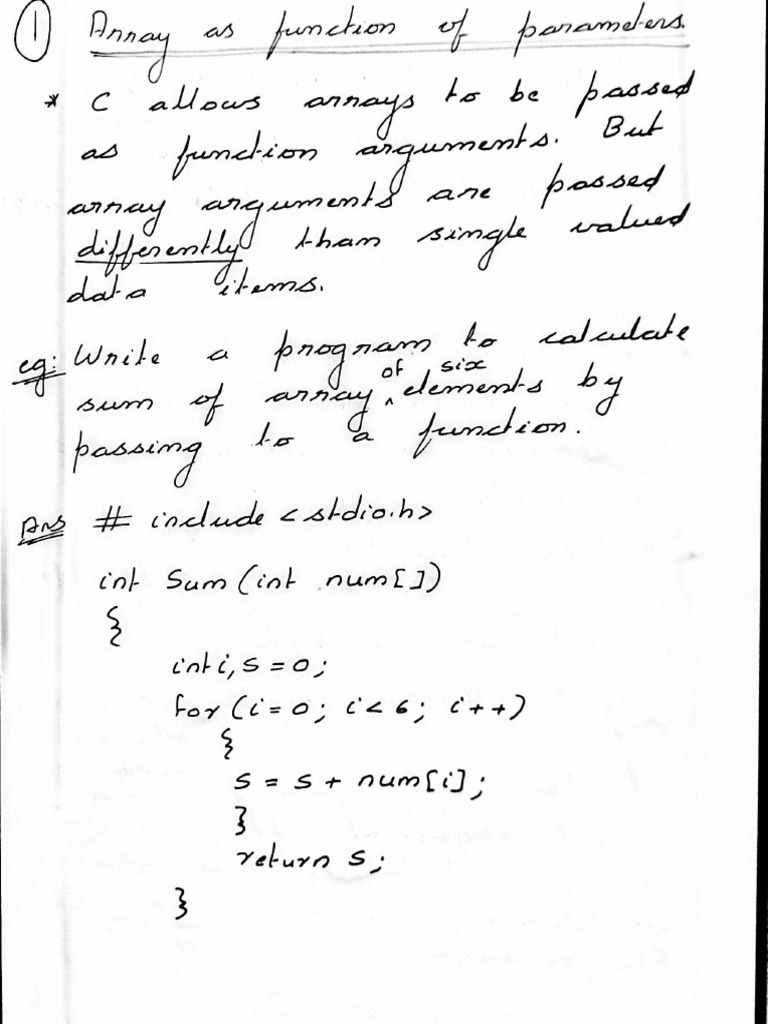 1 Array as function of parameters.
* C allows arrays to be passed
as function arguments. But
array arguments are passed
differently than single valued
data items.
eg: Write a program to calculate
sum of array of six elements by
passing to a function.
Ans # include <stdio.h>
int Sum (int num[])
{
int i, s = 0;
for (i = 0; i < 6; i ++)
{
s = s + num[i];
}
return s;
}